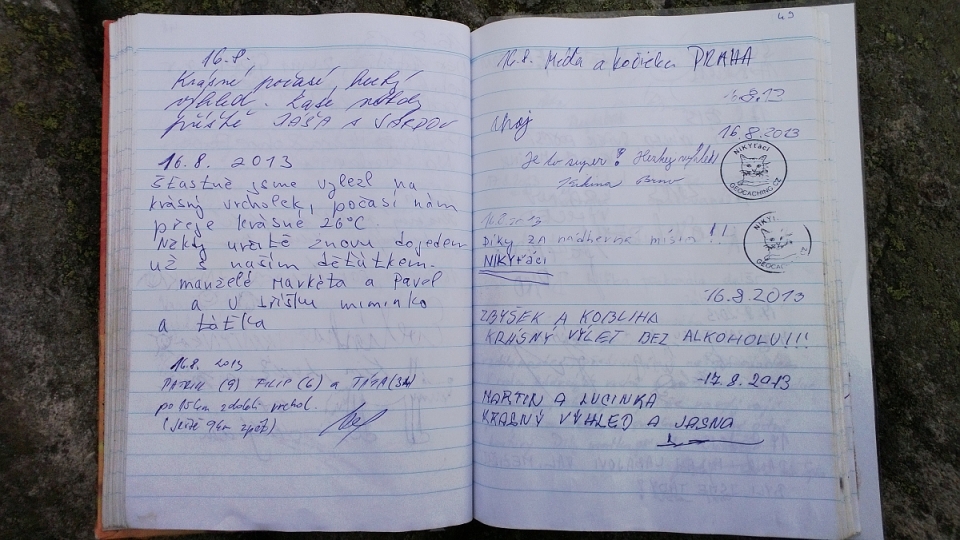 16.8.
Krásné počasí, hezký
výhled. Zase někdy
příště JAŠA A
16.8. 2013
šťastně jsme vylezl na
krásný vrcholek, počasí nám
přeje krásné 26°C.
Někdy určitě znovu dojedem
už s naším děťátkem.
manželé Markéta a Pavel
a v bříšku miminko
a
16.8. 2013
PATRIK (9) FILIP (6) a TÁTA
po 15km zdolali vrchol.
(ještě 9km zpět)
49
16.8. Méďa a kočička PRAHA
ahoj
16.8.2013
Je to super! Hezky výhled
Brno
NIKYťáci
GEOCACHING.CZ
Díky za nádherné místo!!
NIKYťáci
NIKY
GEOC CZ
16.8.2013
ZBYŠEK A KOBLIHA
KRÁSNÝ VÝLET BEZ ALKOHOLU!!!
-17.8.2013
MARTIN A LUCINKA
KRÁSNÝ VÝHLED A JASNA